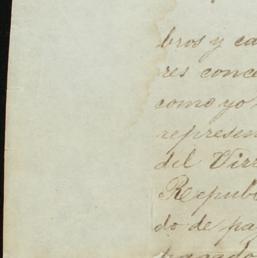 bros y ca
res conce
como yo
represen
del Virr
Repub
do de pa